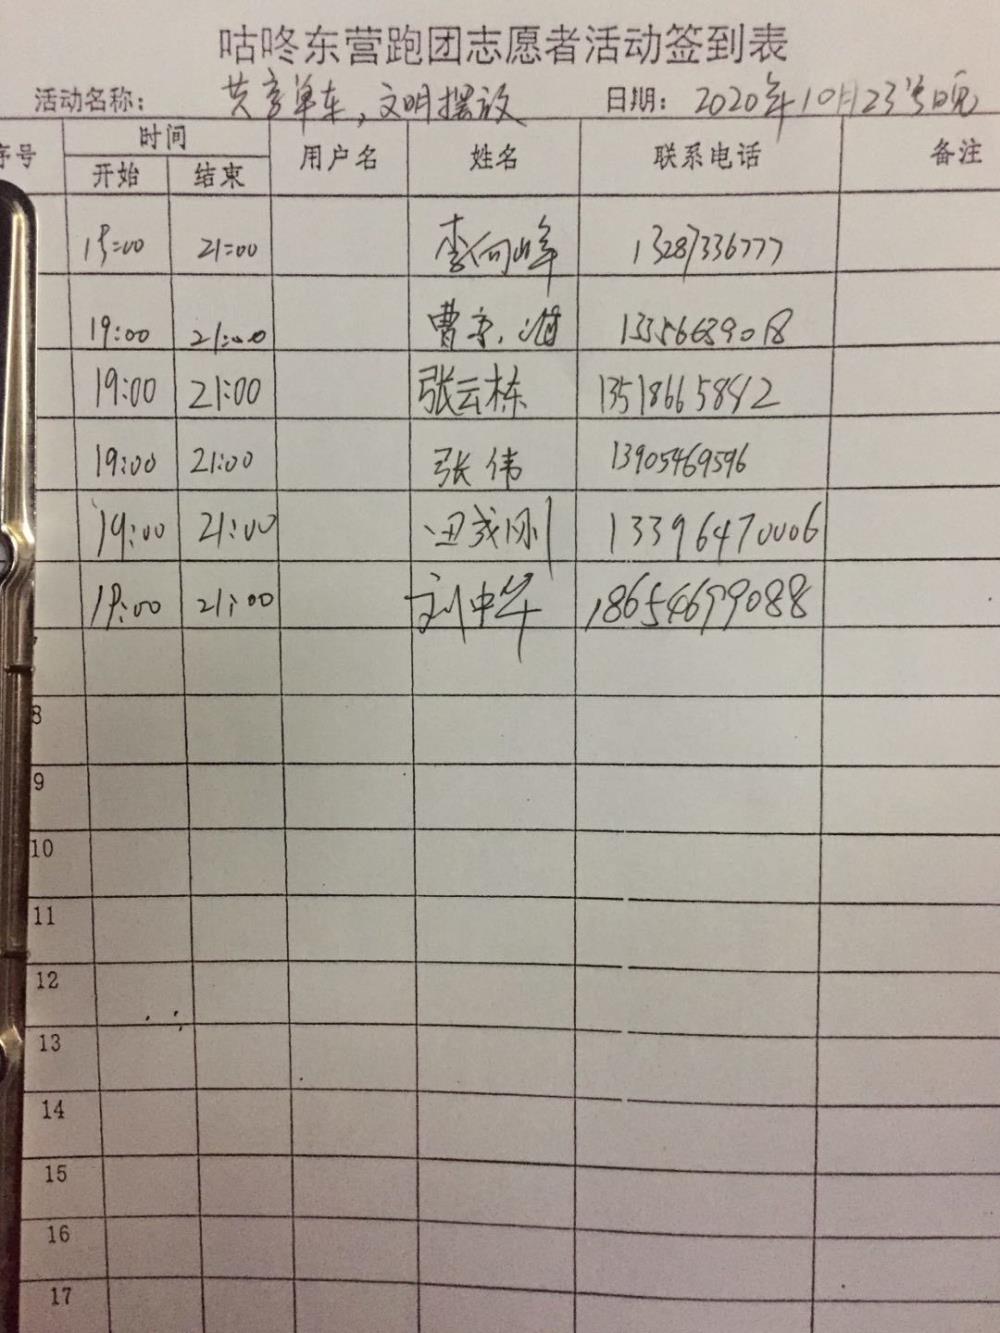 咕咚东营跑团志愿者活动签到表
活动名称： 共享单车，文明摆放 日期： 2020年10月23号晚
序号 时间 用户名 姓名 联系电话 备注
开始 结束
19:00 21:00 李向峰 13287336777
19:00 21:00 曹京 13356689018
19:00 21:00 张云栋 13518665842
19:00 21:00 张伟 13905469596
19:00 21:00 刚 13396470006
19:00 21:00 刘中华 18654699088
8
9
10
11
12
13
14
15
16
17